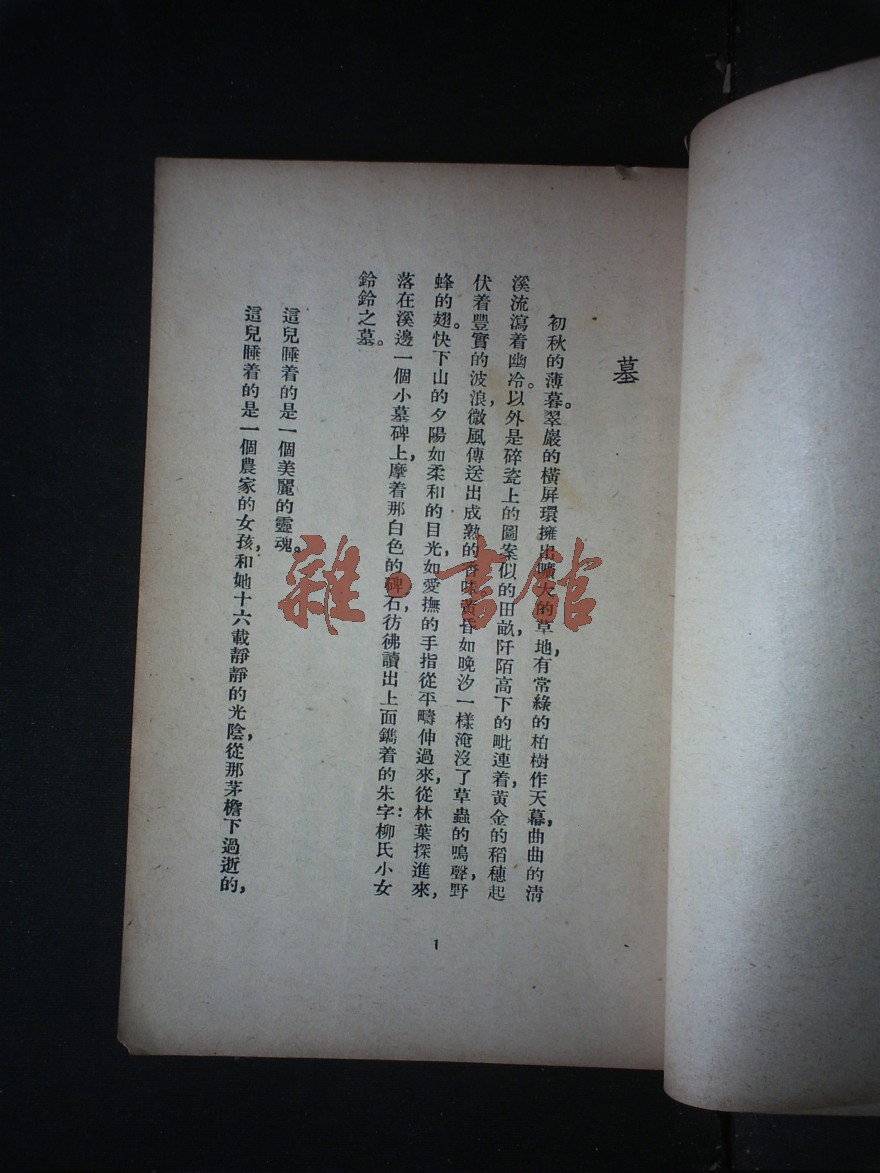 墓
初秋的薄暮。翠巖的橫屏環擁出曠大的草地，有常綠的柏樹作天幕，曲曲的清
溪流瀉着幽冷。以外是碎瓷上的圖案似的田畝，阡陌高下的毗連着，黃金的稻穗起
伏着豐實的波浪，微風傳送出成熟的香味。黃昏如晚汐一樣淹沒了草蟲的鳴聲，野
蜂的翅。快下山的夕陽如柔和的目光，如愛撫的手指從平疇伸過來，從林葉探進來，
落在溪邊一個小墓碑上，摩着那白色的碑石，彷彿讀出上面鐫着的朱字：柳氏小女
鈴鈴之墓。
這兒睡着的是一個美麗的靈魂。
這兒睡着的是一個農家的女孩，和她十六載靜靜的光陰，從那茅檐下過逝的，
1
雜·書館